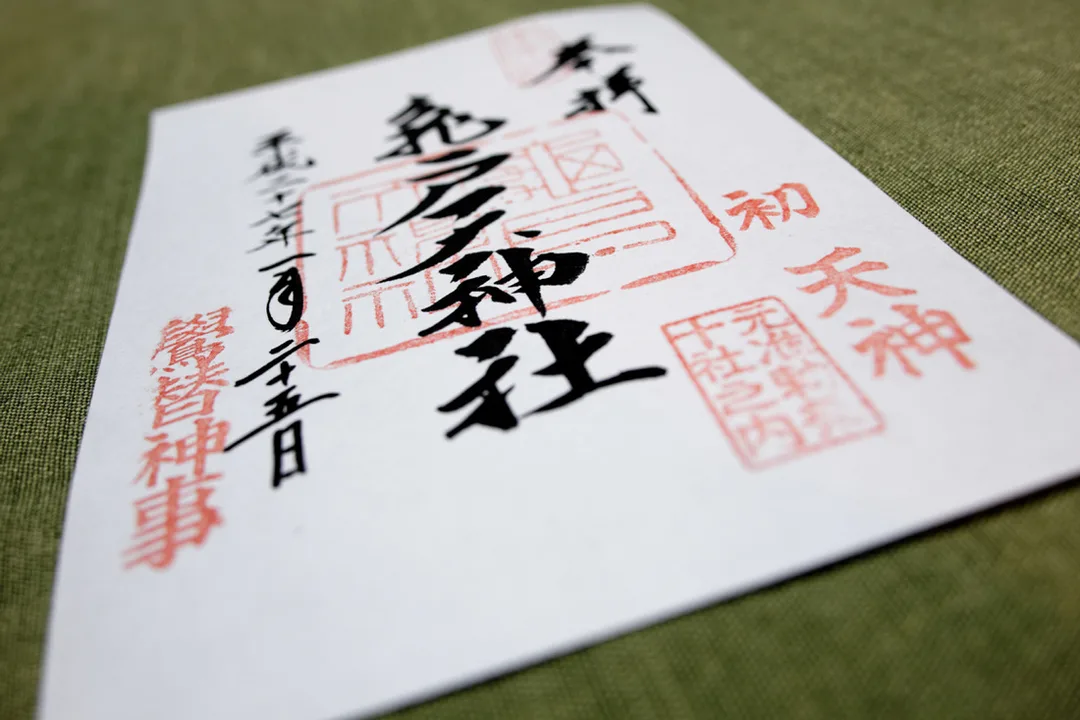 奉拝
初天神
元准勅祭
十社之内
亀戸天神社
平成二十七年一月二十五日
鷽替神事